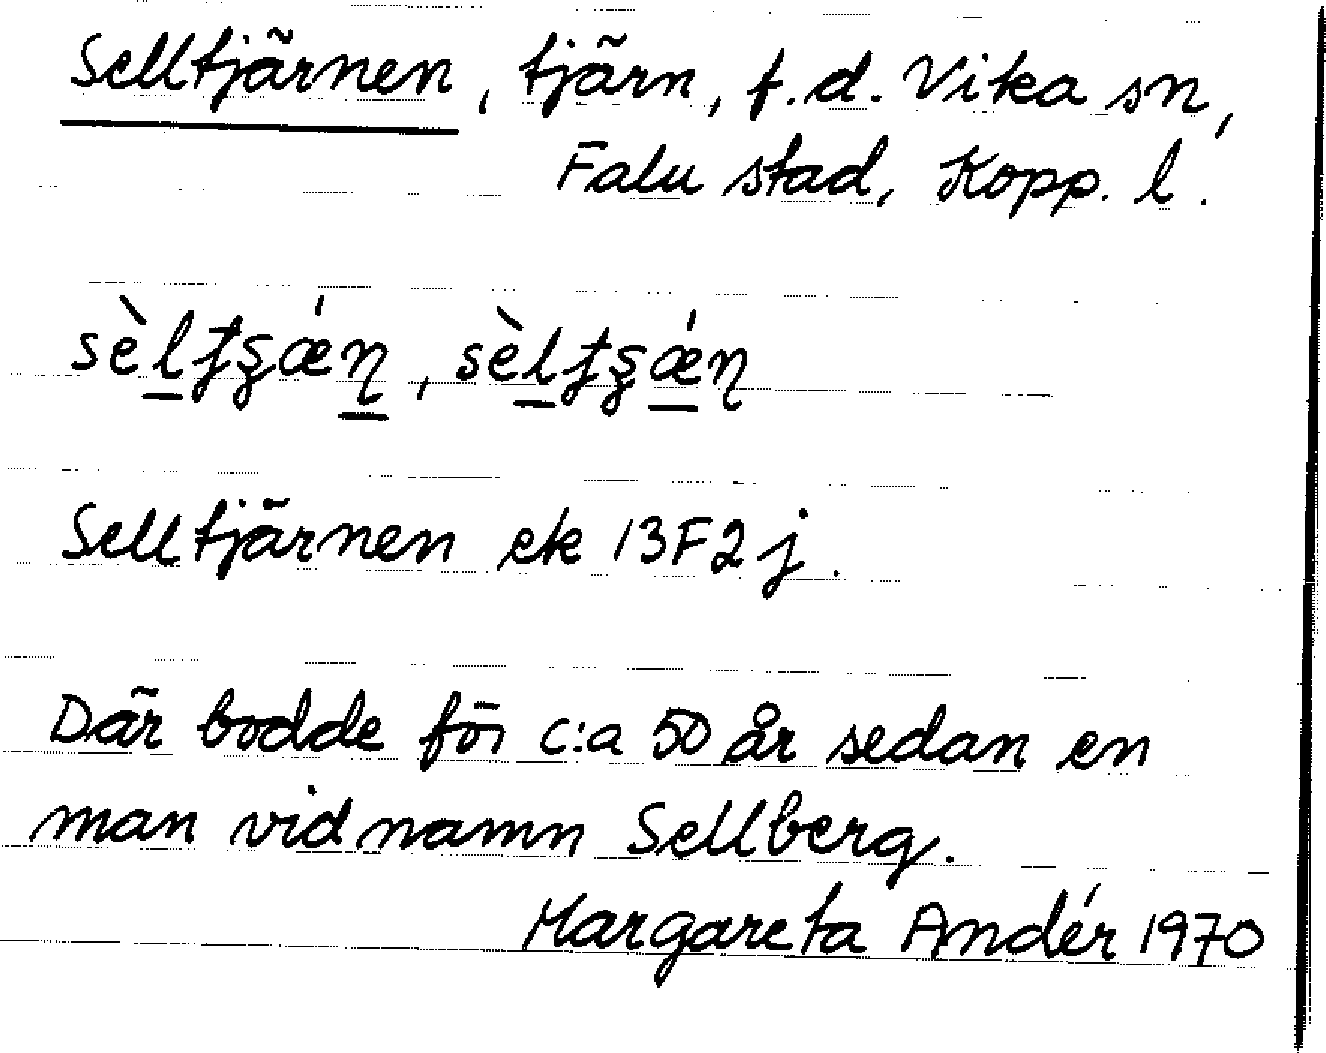 Selltjärnen, tjärn, f.d. Vika sn,
Falu stad, Kopp. l.
Selltjärnen ek 13F2j.
Där bodde för c:a 50 år sedan en
man vid namn Sellberg.
Margareta Andér 1970